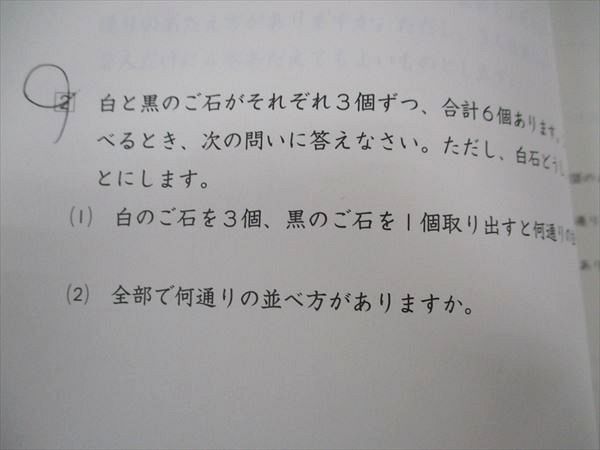 2 白と黒のご石がそれぞれ3個ずつ、合計6個あります。
べるとき、次の問いに答えなさい。ただし、白石どうし
とにします。
(1) 白のご石を3個、黒のご石を1個取り出すと何通りの
(2) 全部で何通りの並べ方がありますか。